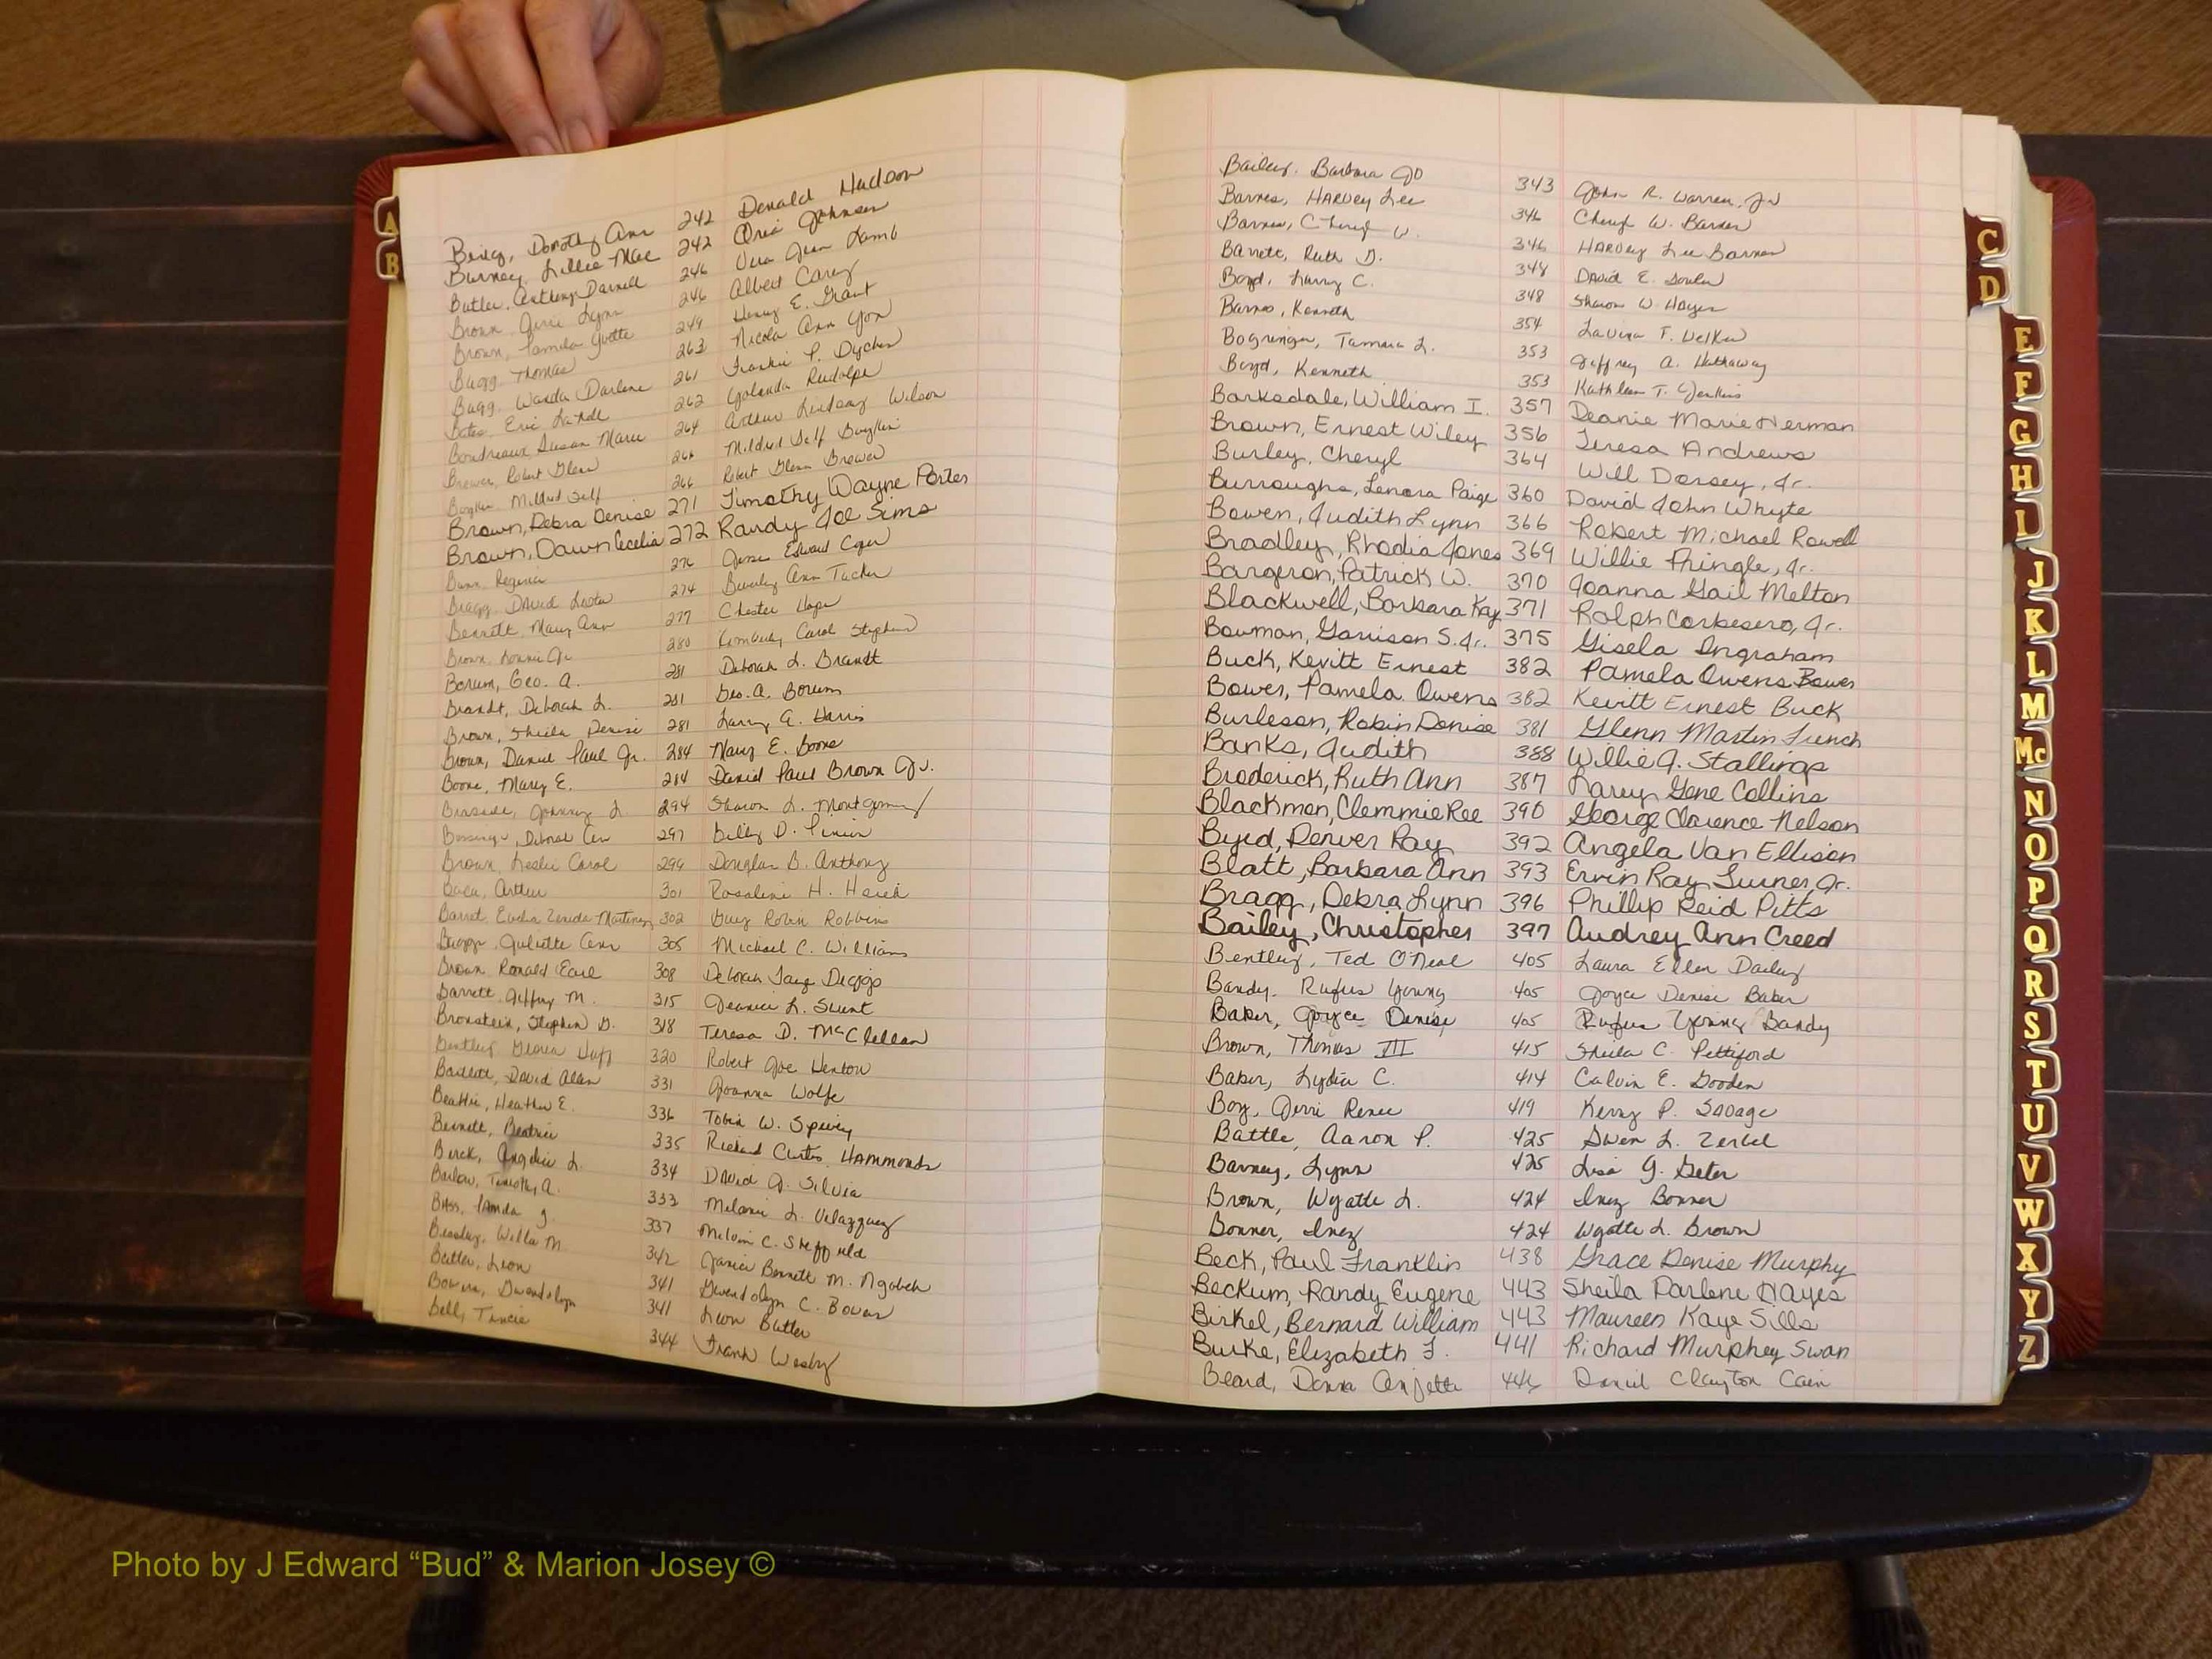 Brigg, Dorothy Ann 242 Donald Hudson
Burney, Lillie Mae 242 Oris Johnson
Butler, Anthony Darnell 246 Vera Jean Lamb
Brown, Lynn 246 Albert Carey
Brown, Pamela Yvette 249 Henry E. Grant
Bugg, Thomas 263 Nicola Ann Yon
Bugg, Wanda Darlene 261 Frankie P. Dyches
Bates, Eric 262 Yolanda Rudolph
Boudreaux, Susan Marie 264 Arthur Lindsay Wilson
Brewer, Robert Glenn 266 Mildred Self Boyllin
Mildred Self 266 Robert Glenn Brewer
Brown, Debra Denise 271 Timothy Wayne Porter
Brown, Dawn Cecelia 272 Randy Joe Sims
Bunn, Regina 276 Jesse Edward Coger
Bragg, David 274 Beverly Ann Tucker
Bennett, Mary Ann 277 Chester Hope
Brown, Lonnie Jr. 280 Kimberly Carol Stephens
Borum, Geo. A. 281 Deborah L. Brandt
Brandt, Deborah L. 281 Geo. A. Borum
Brown, Sheila Denise 281 Larry G. Harris
Brown, Daniel Paul Jr. 284 Mary E. Boone
Boone, Mary E. 284 Daniel Paul Brown Jr.
Johnny L 294 Sharon L. Montgomery
Deborah Ann 297 Billy D.
Brown, Leslie Carol 299 Douglas B. Anthony
Baca, Arthur 301 Rosalini H.
Barret, Evelia Zenida Martinez 302 Guy Robin Robbins
Buggs, Juliette Ann 305 Michael C. Williams
Brown, Ronald Earl 308 Deborah Faye Diggs
Barrett, Jeffrey M. 315 Jeanie L.
Bronstein, Stephen D. 318 Teresa D. McClellan
Bentley, Gloria Huff 320 Robert Joe Henton
Bartlett, David Alan 331 Joanna Wolfe
Beattie, Heather E. 336 Tobin W. Spivey
Bennett, Beatrice 335 Richard Curtis Hammonds
Burck, Angelic L. 334 David J. Silvia
Barlow, Timothy A. 333 Melanie L. Velazquez
Bass, Amanda J. 337 Melvin C. Sheffield
Beasley, Willa M. 342 Janice Bennett M. Ngobeh
Butler, Leon 341 Gwendolyn C. Bowens
Bowens, Gwendolyn 341 Leon Butler
Bell, Tancie 344 Frank Wesby
Bailey, Barbara Jo 343 John R. Warren, Jr
Barnes, Harvey Lee 346 Cheryl W. Barnes
Barnes, Cheryl W. 346 Harvey Lee Barnes
Barrett, Ruth D. 348 David E.
Boyd, Larry C. 348 Sharon W. Hayes
Barnes, Kenneth 354 Lavina F. Welker
Bogringer, Tamara L. 353 Jeffrey A. Hathaway
Boyd, Kenneth 353 Kathleen T. Jenkins
Barksdale, William I. 357 Deanie Marie Herman
Brown, Ernest Wiley 356 Teresa Andrews
Burley, Cheryl 364 Will Dorsey, Jr.
Burroughs, Lenora Paige 360 David John Whyte
Bowen, Judith Lynn 366 Robert Michael Rowell
Bradley, Rhodia Jones 369 Willie Pringle, Jr.
Bargeron, Patrick W. 370 Joanna Gail Melton
Blackwell, Barbara Kay 371 Ralph Corbesero, Jr.
Bowman, Garrison S. Jr. 375 Gisela Ingraham
Buck, Kevitt Ernest 382 Pamela Owens Bower
Bower, Pamela Owens 382 Kevitt Ernest Buck
Burleson, Robin Denise 381 Glenn Martin French
Banks, Judith 388 Willie J. Stallings
Broderick, Ruth Ann 387 Larry Gene Collins
Blackmon, Clemmie Ree 390 George Clarence Nelson
Byrd, Denver Ray 392 Angela Van Ellison
Blatt, Barbara Ann 393 Ervin Ray Turner, Jr.
Bragg, Debra Lynn 396 Phillip Reid Pitts
Bailey, Christopher 397 Audrey Ann Creed
Bentley, Ted O'Neal 405 Laura Ellen Dailey
Bandy, Rufus Young 405 Joyce Denise Baker
Baker, Joyce Denise 405 Rufus Young Bandy
Brown, Thomas III 415 Sheila C. Pettiford
Baker, Lydia C. 414 Calvin E. Gooden
Boy, Jerri Renee 419 Kerry P. Savage
Battle, Aaron P. 425 Gwen L. Zerbel
Barney, Lynn 425 Lisa G. Geter
Brown, Wyatte L. 424 Inez Bonner
Bonner, Inez 424 Wyatte L. Brown
Beck, Paul Franklin 438 Grace Denise Murphy
Beckum, Randy Eugene 443 Sheila Darlene Hayes
Birkel, Bernard William 443 Maureen Kaye Sills
Burke, Elizabeth F. 441 Richard Murphey Swan
Beard, Donna Anjette 446 Daniel Clayton Cain
A
B
C
D
E
F
G
H
I
J
K
L
M
Mc
N
O
P
Q
R
S
T
U
V
W
X
Y
Z
Photo by J Edward “Bud” & Marion Josey ©